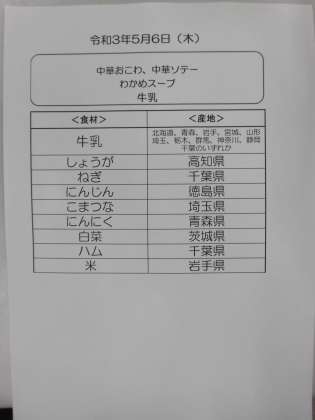 令和3年5月6日（木）
中華おこわ、中華ソテー
わかめスープ
牛乳
＜食材＞ ＜産地＞
牛乳 北海道、青森、岩手、宮城、山形
埼玉、栃木、群馬、神奈川、静岡
千葉のいずれか
しょうが 高知県
ねぎ 千葉県
にんじん 徳島県
こまつな 埼玉県
にんにく 青森県
白菜 茨城県
ハム 千葉県
米 岩手県